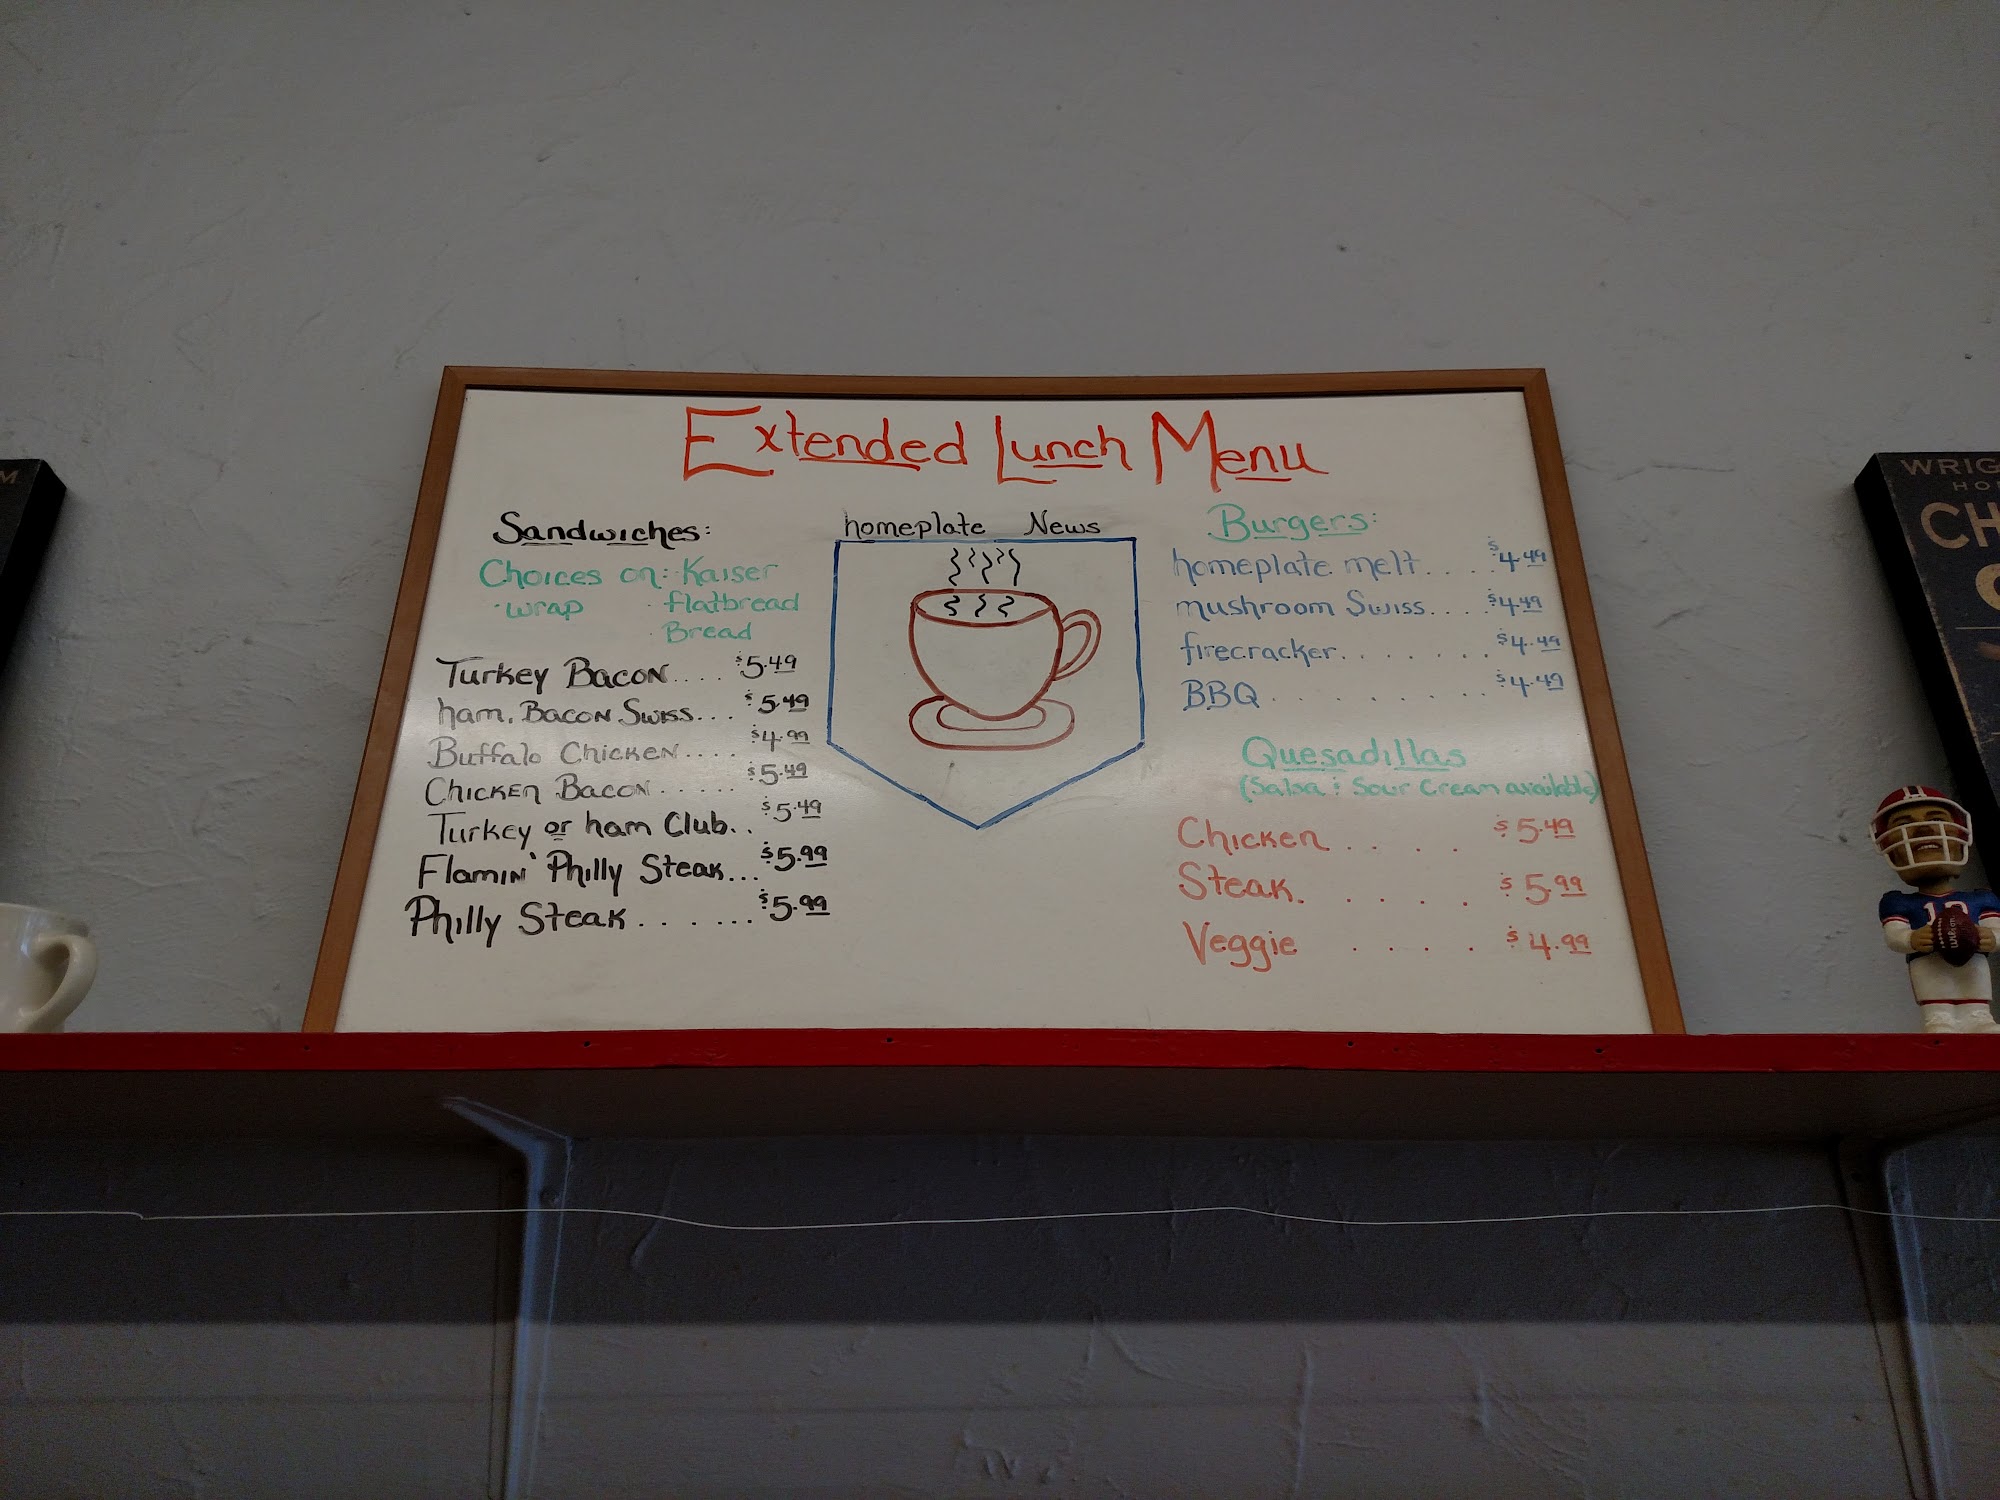 Extended Lunch Menu
Sandwiches:
Choices on: Kaiser
· wrap · flatbread
· Bread
Turkey Bacon.... $5.49
ham, Bacon Swiss... $5.49
Buffalo Chicken.... $4.99
Chicken Bacon..... $5.49
Turkey or ham Club.. $5.49
Flamin' Philly Steak... $5.99
Philly Steak....... $5.99
homeplate News
Burgers:
homeplate melt.... $4.49
mushroom Swiss.... $4.49
firecracker....... $4.49
BBQ.......... $4.49
Quesadillas
(Salsa & Sour Cream available)
Chicken.... $5.49
Steak..... $5.99
Veggie.... $4.99
M
WRIG
HO
CH
Wilson